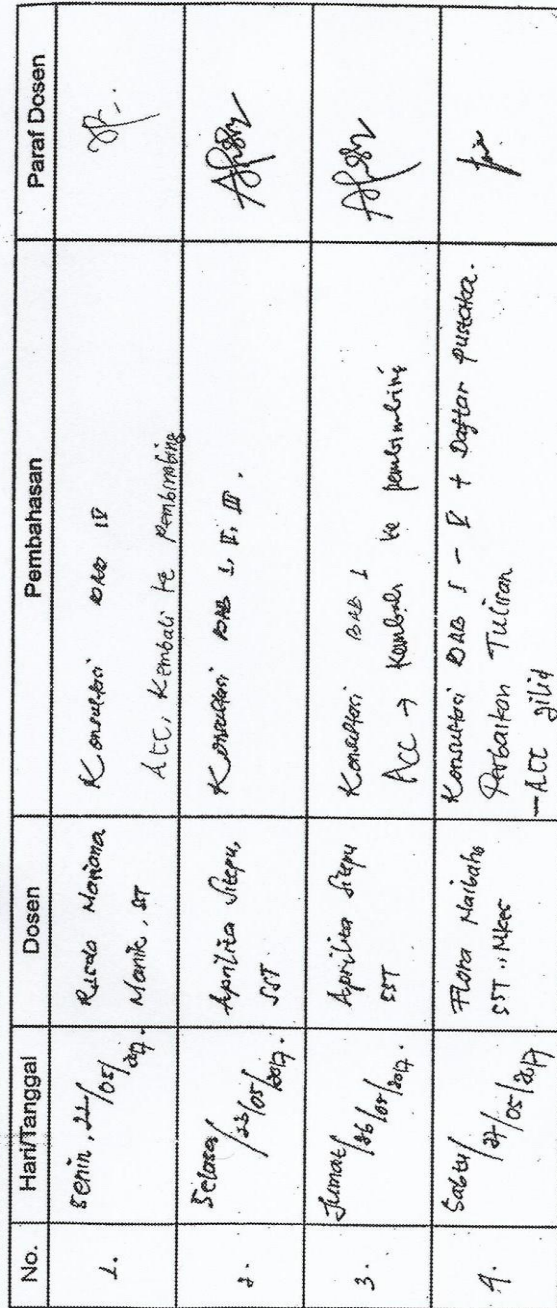 No. Hari/Tanggal Dosen Pembahasan Paraf Dosen
1. Senin, 22/05/2017. Risda Mariana Manik, ST Konsultasi BAB IV
Acc, Kembali ke Pembimbing
2. Selasa/23/05/2017. Aprilita Sitepu, SST Konsultasi BAB I, II, III.
3. Jumat/26/05/2017. Aprilita Sitepu SST Konsultasi BAB I
Acc → Kembali ke pembimbing
4. Sabtu/27/05/2017 Flora Naibaho SST., MKes Konsultasi BAB I - V + Daftar pustaka.
Perbaikan Tulisan
- Acc jilid